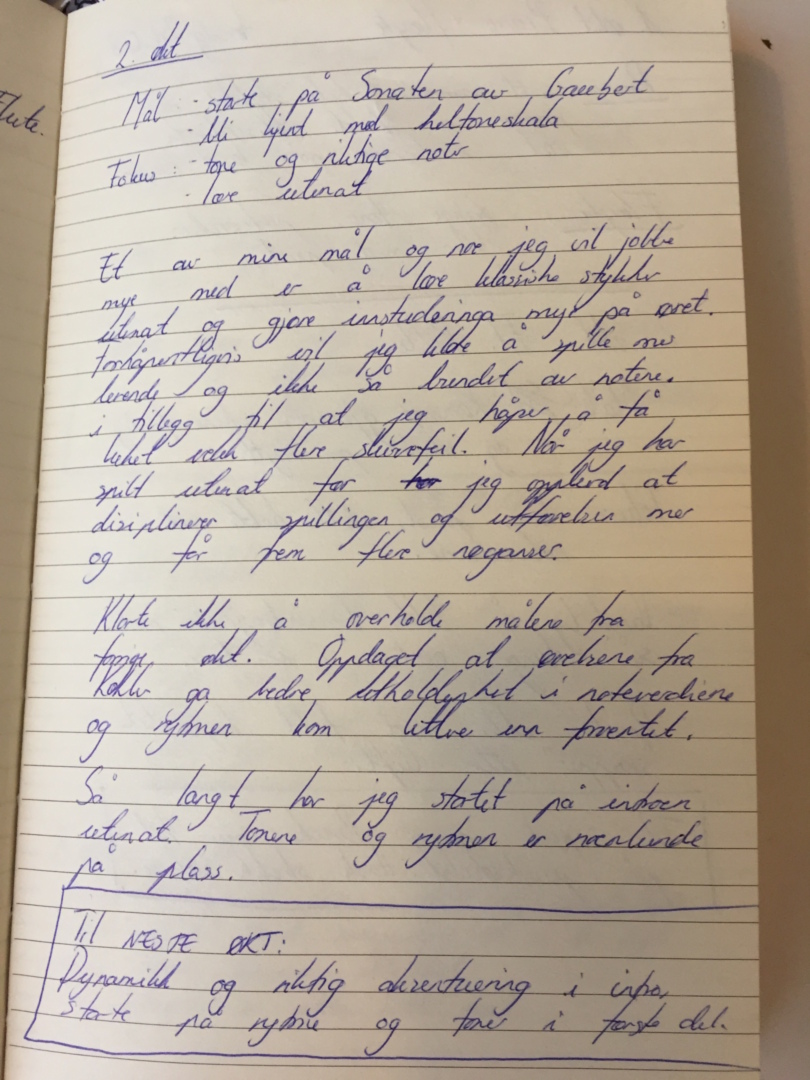 flute.
2. økt
Mål: - starte på Sonaten av Gaubert
- bli kjent med heltoneskala
Fokus: - tone og riktige noter
- lære utenat
Et av mine mål og noe jeg vil jobbe
mye med er å lære klassiske stykker
utenat og gjøre innstuderinga mye på øret.
Forhåpentligvis vil jeg klare å spille mer
levende og ikke så bundet av notene.
i tillegg til at jeg håper å få
luket vekk flere slurvefeil. Når jeg har
spilt utenat før har jeg opplevd at
disiplinerer spillingen og utførelsen mer
og får frem flere nøyanser.
Klarte ikke å overholde målene fra
forrige økt. Oppdaget at øvelsene fra
ga bedre utholdenhet i noteverdiene
og rytmen kom lettere enn forventet.
Så langt har jeg startet på introen
utenat. Tonene og rytmen er nærlunde
på plass.
Til NESTE ØKT:
Dynamikk og riktig aksentuering i intro,
starte på rytme og toner i første del.